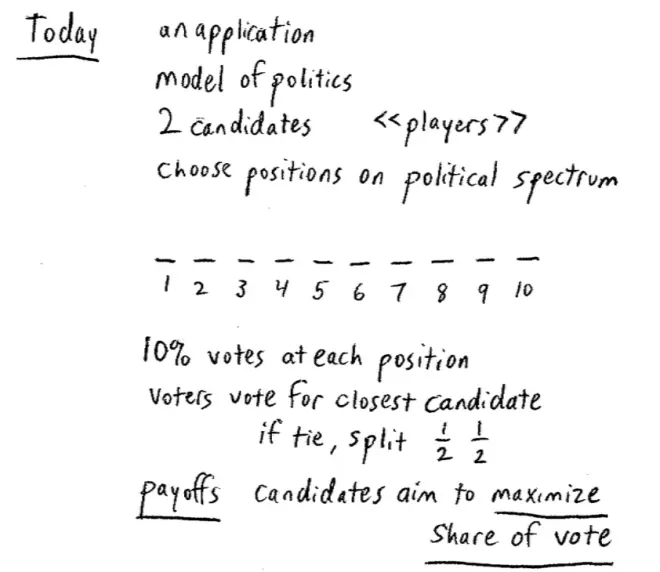 Today an application
model of politics
2 candidates <<players>>
choose positions on political spectrum
1 2 3 4 5 6 7 8 9 10
10% votes at each position
Voters vote for closest candidate
if tie, split 1/2 1/2
payoffs candidates aim to maximize
share of vote